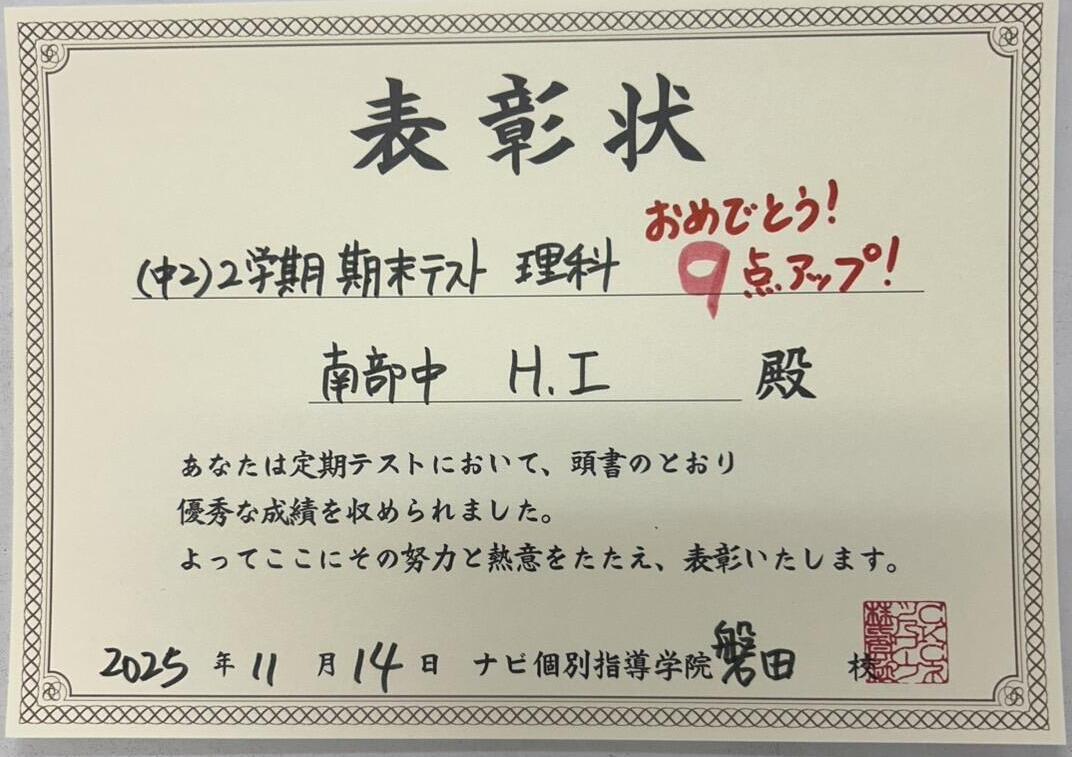 表彰状
おめでとう!
(中2)2学期 期末テスト 理科 9点アップ!
南部中 H.I 殿
あなたは定期テストにおいて、頭書のとおり
優秀な成績を収められました。
よってここにその努力と熱意をたたえ、表彰いたします。
2025 年 11 月 14 日 ナビ個別指導学院 磐田 校